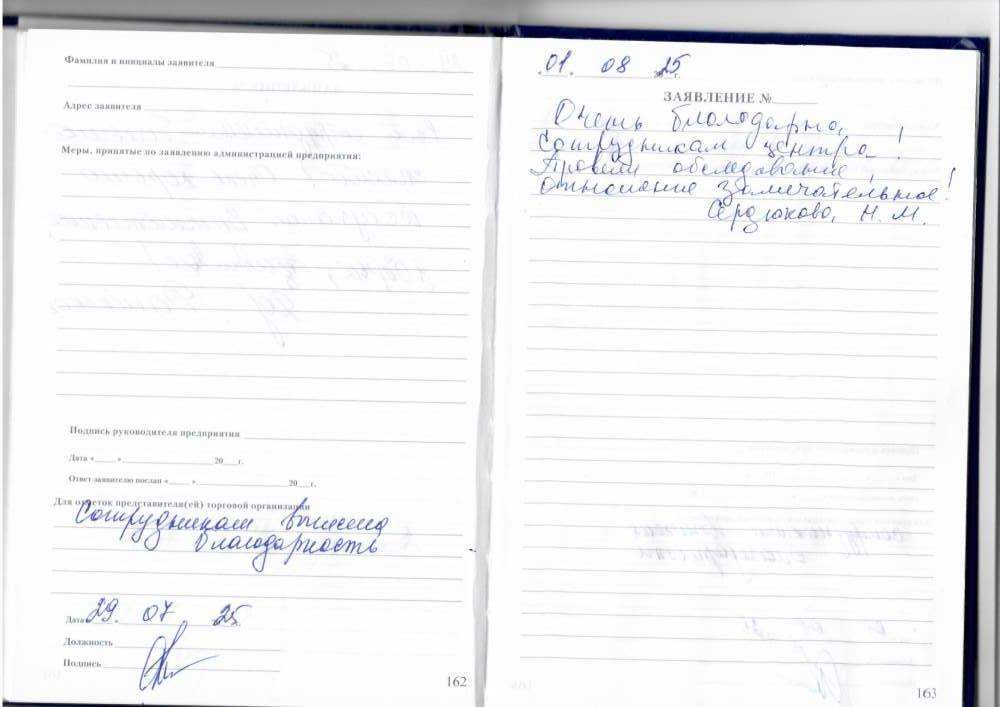 Фамилия и инициалы заявителя
Адрес заявителя
Меры, принятые по заявлению администрацией предприятия:
Подпись руководителя предприятия
Дата «____ »____________ 20___г.
Ответ заявителю послан «____ »____________ 20___г.
Для отметок представителя(ей) торговой организации
Сотрудникам вынесена
благодарность
Дата 29. 07 25.
Должность
Подпись
162
01. 08 25 г.
ЗАЯВЛЕНИЕ №
Очень благодарна,
Сотрудникам центра!
Провели обследование,
отношение замечательное!
Сердюкова, Н. М.
163